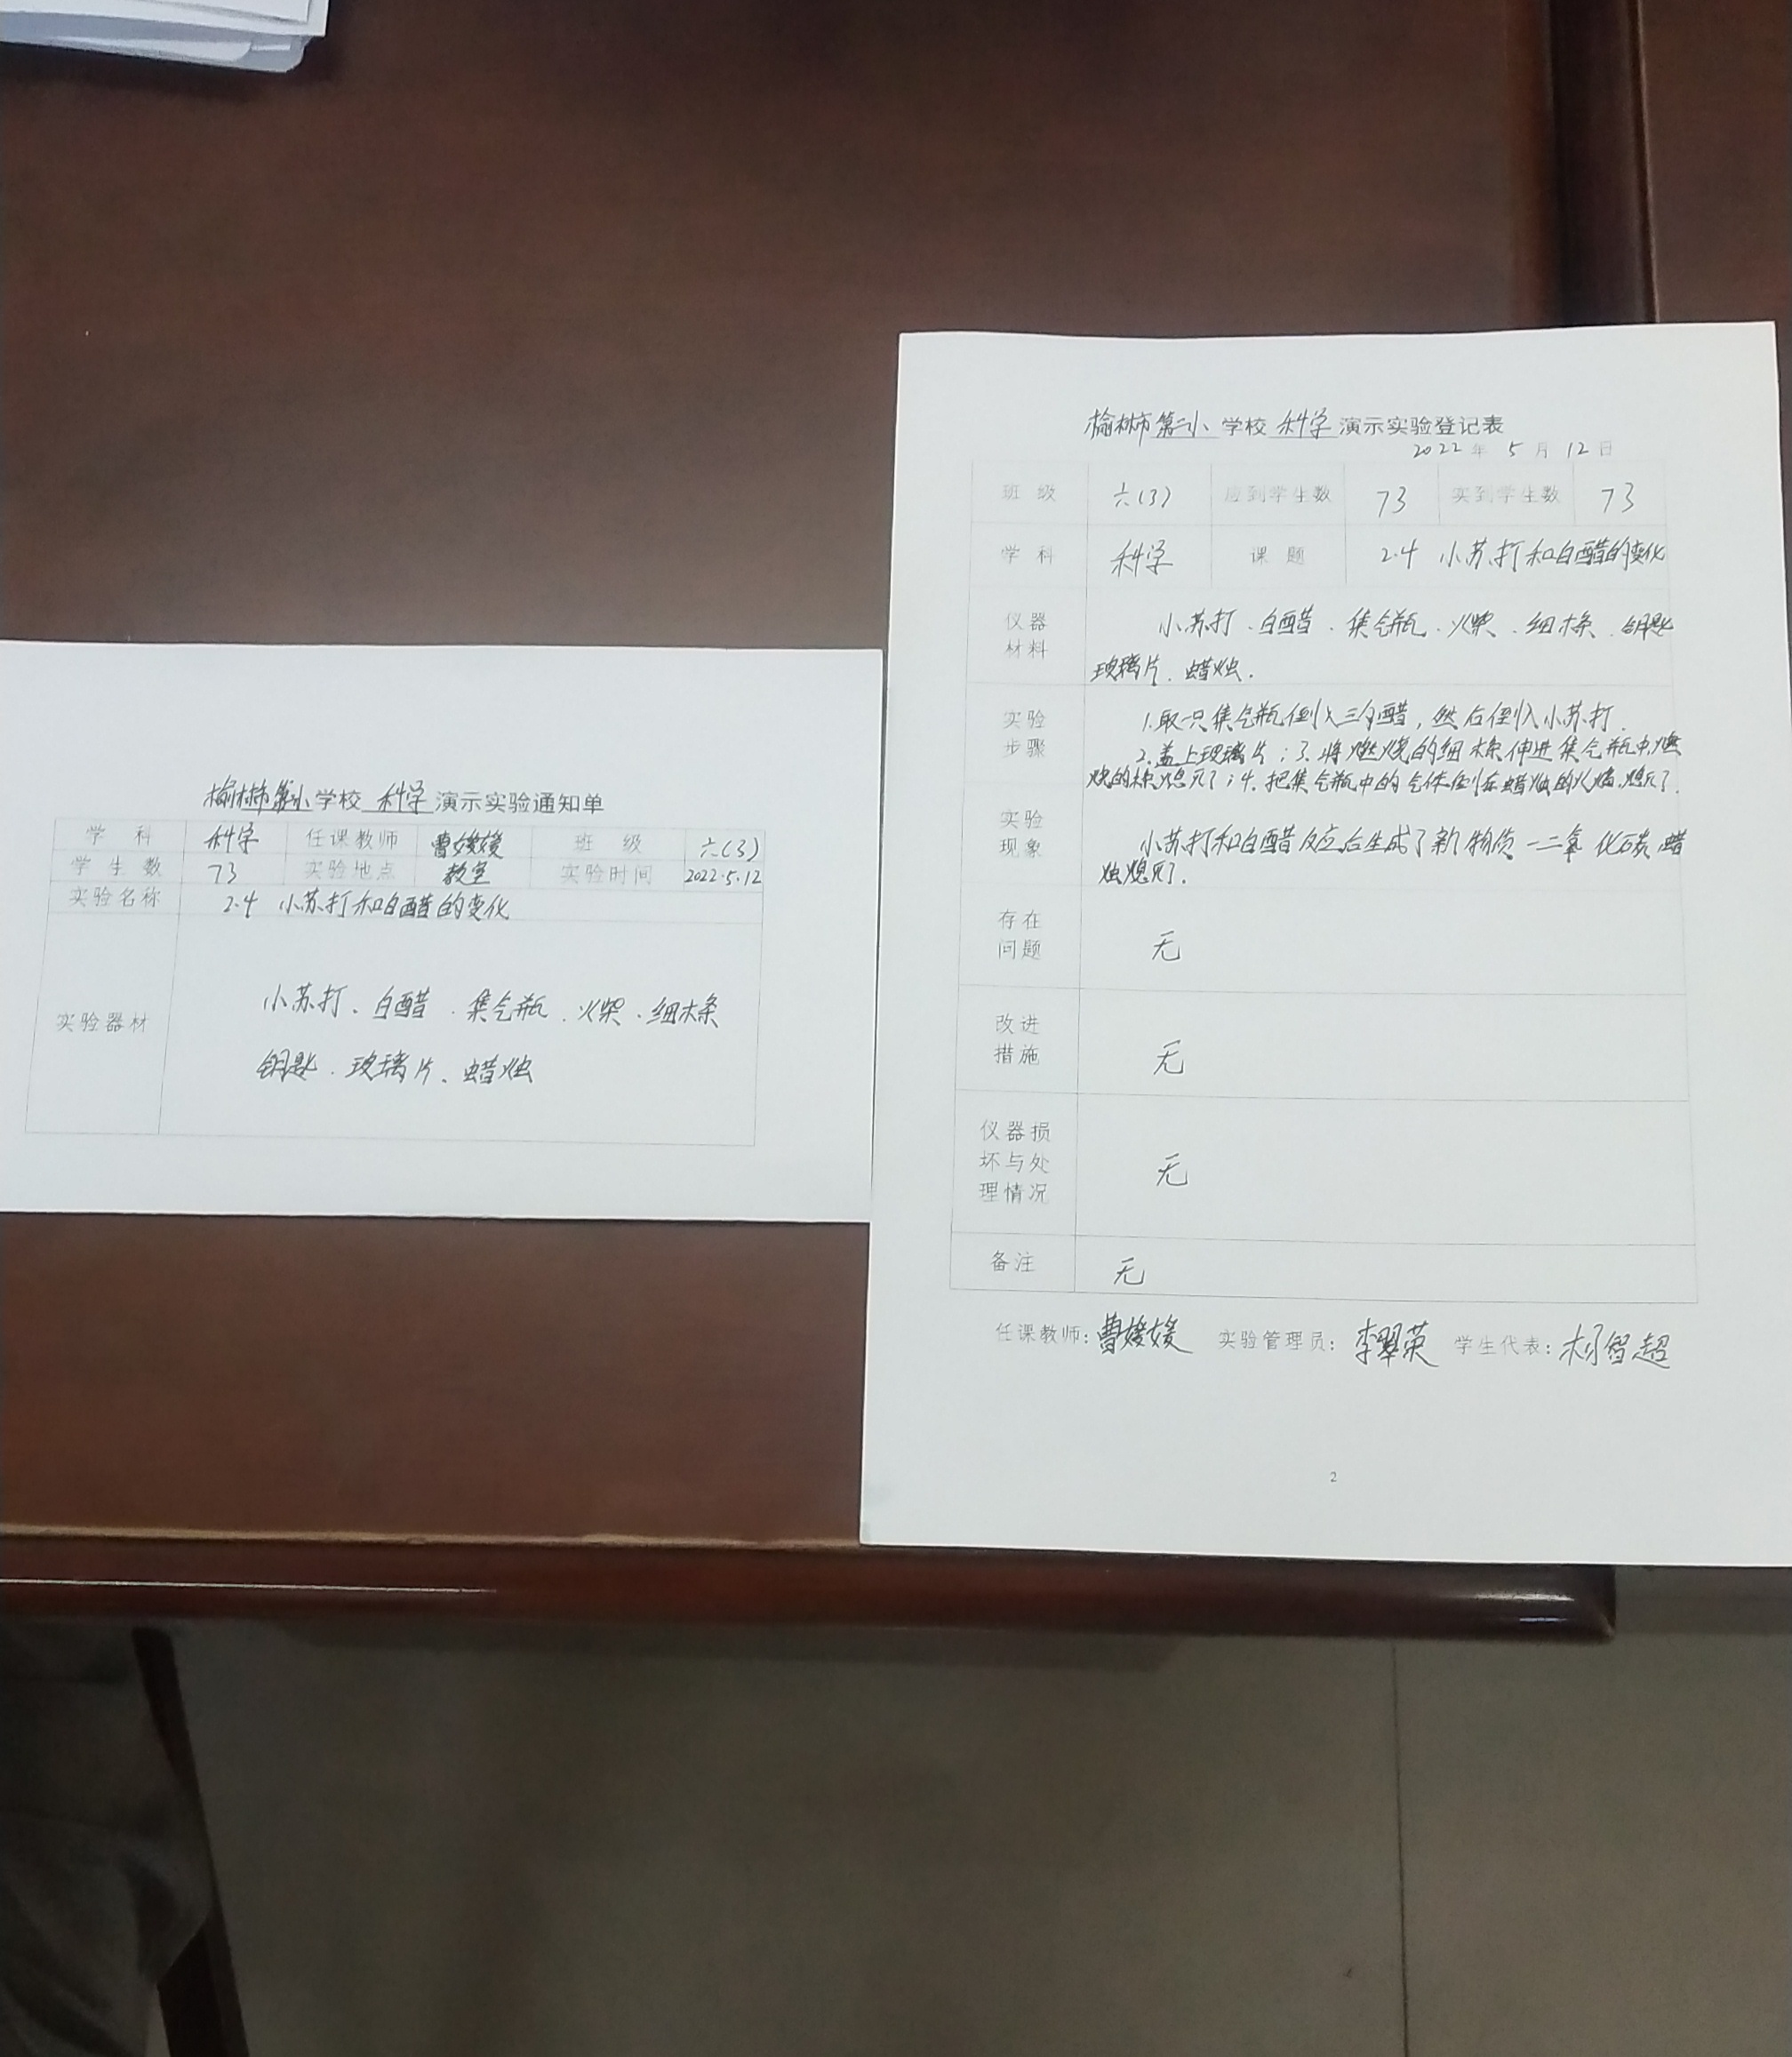 榆林市第二小学校 科学 演示实验通知单
学 科 科学 任课教师 曹媛媛 班 级 六(3)
学生数 73 实验地点 教室 实验时间 2022.5.12
实验名称 2.4 小苏打和白醋的变化
实验器材
小苏打、白醋、集气瓶、火柴、细木条
钥匙、玻璃片、蜡烛
榆林市第二小学校 科学 演示实验登记表
2022年 5月 12日
班 级 六(3) 应到学生数 73 实到学生数 73
学 科 科学 课 题 2.4 小苏打和白醋的变化
仪器材料
小苏打、白醋、集气瓶、火柴、细木条、钥匙
玻璃片、蜡烛.
实验步骤
1.取一只集气瓶倒入三勺醋,然后倒入小苏打.
2.盖上玻璃片;3.将燃烧的细木条伸进集气瓶中,燃
烧的木条熄灭了;4.把集气瓶中的气体倒在蜡烛的火焰,熄灭了.
实验现象
小苏打和白醋反应后生成了新物质一二氧化碳,蜡
烛熄灭了.
存在问题
无
改进措施
无
仪器损坏与处理情况
无
备注 无
任课教师:曹媛媛 实验管理员:李翠英 学生代表:智超
2